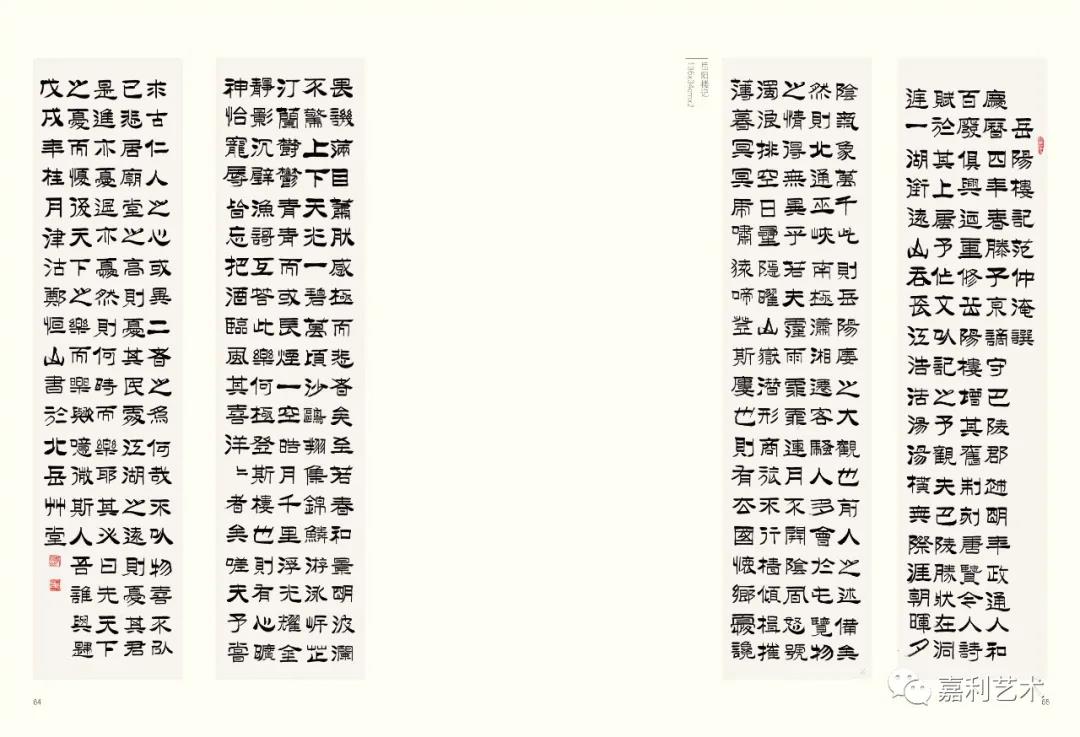 岳陽樓記范仲淹撰
慶曆四年春滕子京謫守巴陵郡越明年政通人和
百廢俱興迺重修岳陽樓增其舊制刻唐賢今人詩
賦於其上屬予作文以記之予觀夫巴陵勝狀在洞
庭一湖銜遠山吞長江浩浩湯湯橫無際涯朝暉夕
陰氣象萬千此則岳陽廔之大觀也前人之述備矣
然則北通巫峽南極瀟湘遷客騷人多會於此覽物
之情得無異乎若夫霪雨霏霏連月不開陰風怒號
濁浪排空日星隱曜山嶽潛形商旅不行檣傾楫摧
薄暮冥冥虎嘯猿啼登斯廔也則有去國懷鄉憂讒
岳阳楼记
136x34cmx2
畏譏滿目蕭然感極而悲者矣至若春和景明波瀾
不驚上下天光一碧萬頃沙鷗翔集錦鱗游泳岸芷
汀蘭鬱鬱青青而或長煙一空皓月千里浮光耀金
靜影沉璧漁哥互答此樂何極登斯樓也則有心曠
神怡寵辱皆忘把酒臨風其喜洋洋者矣嗟夫予嘗
求古仁人之心或異二者之為何哉不以物喜不以
己悲居廟堂之高則憂其民處江湖之遠則憂其君
是進亦憂退亦憂然則何時而樂耶其必曰先天下
之憂而憂後天下之樂而樂歟噫微斯人吾誰與歸
戊戌年桂月津沽鄭恒山書於北岳艸堂
64
65
嘉利艺术